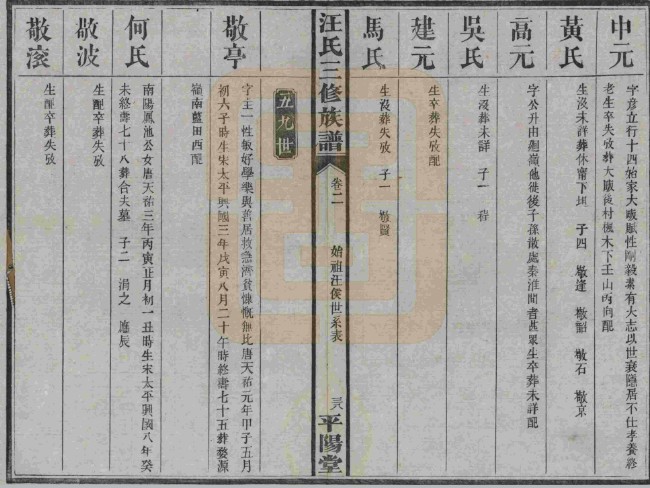 申元
字彥立行十四怡家大畈賦性剛毅素有大志以世衰隱居不仕孝養終
老生卒失攷葬大畈後村楓木下壬山丙向配
黃氏
生沒未詳葬休甯下坦 子四 敬逢 敬韶 敬石 敬京
高元
字公升由廻嶺他徙後子孫散處秦淮間者甚眾生卒葬未詳配
吳氏
生沒葬未詳 子一
建元
生卒葬失攷配
馬氏
生沒葬失攷 子一
汪氏三修族譜
卷二
始祖汪侯世系表
三八
平陽堂
五九世
敬亭
字主一性敏好學樂與善居救急濟貧慷慨無比唐天祐元年甲子五月
初六子時生宋太平興國三年戊寅八月二十午時終壽七十五葬婺源
嶺南藍田西配
何氏
南陽鳳池公女唐天祐三年丙寅正月初一丑時生宋太平興國八年癸
未終壽七十八葬合夫墓 子二 涓之 應辰
敬波
生配卒葬失攷
敬滾
生配卒葬失攷